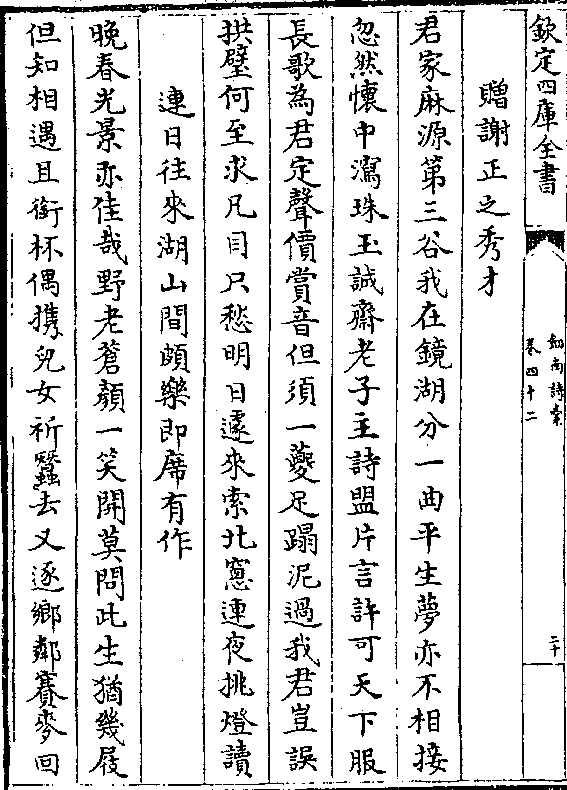 欽定四庫全書
劍南詩藁
卷四十二
二十
贈謝正之秀才
君家麻源第三谷我在鏡湖分一曲平生夢亦不相接
忽然懷中瀉珠玉誠齋老子主詩盟片言許可天下服
長歌為君定聲價賞音但須一夔足蹋泥過我君豈誤
拱璧何至求凡目只愁明日遽來索北窻連夜挑燈讀
連日往來湖山間頗樂即席有作
晚春光景亦佳哉野老蒼顔一笑開莫問此生猶幾屐
但知相遇且銜杯偶攜兒女祈蠶去又逐鄉鄰賽麥回